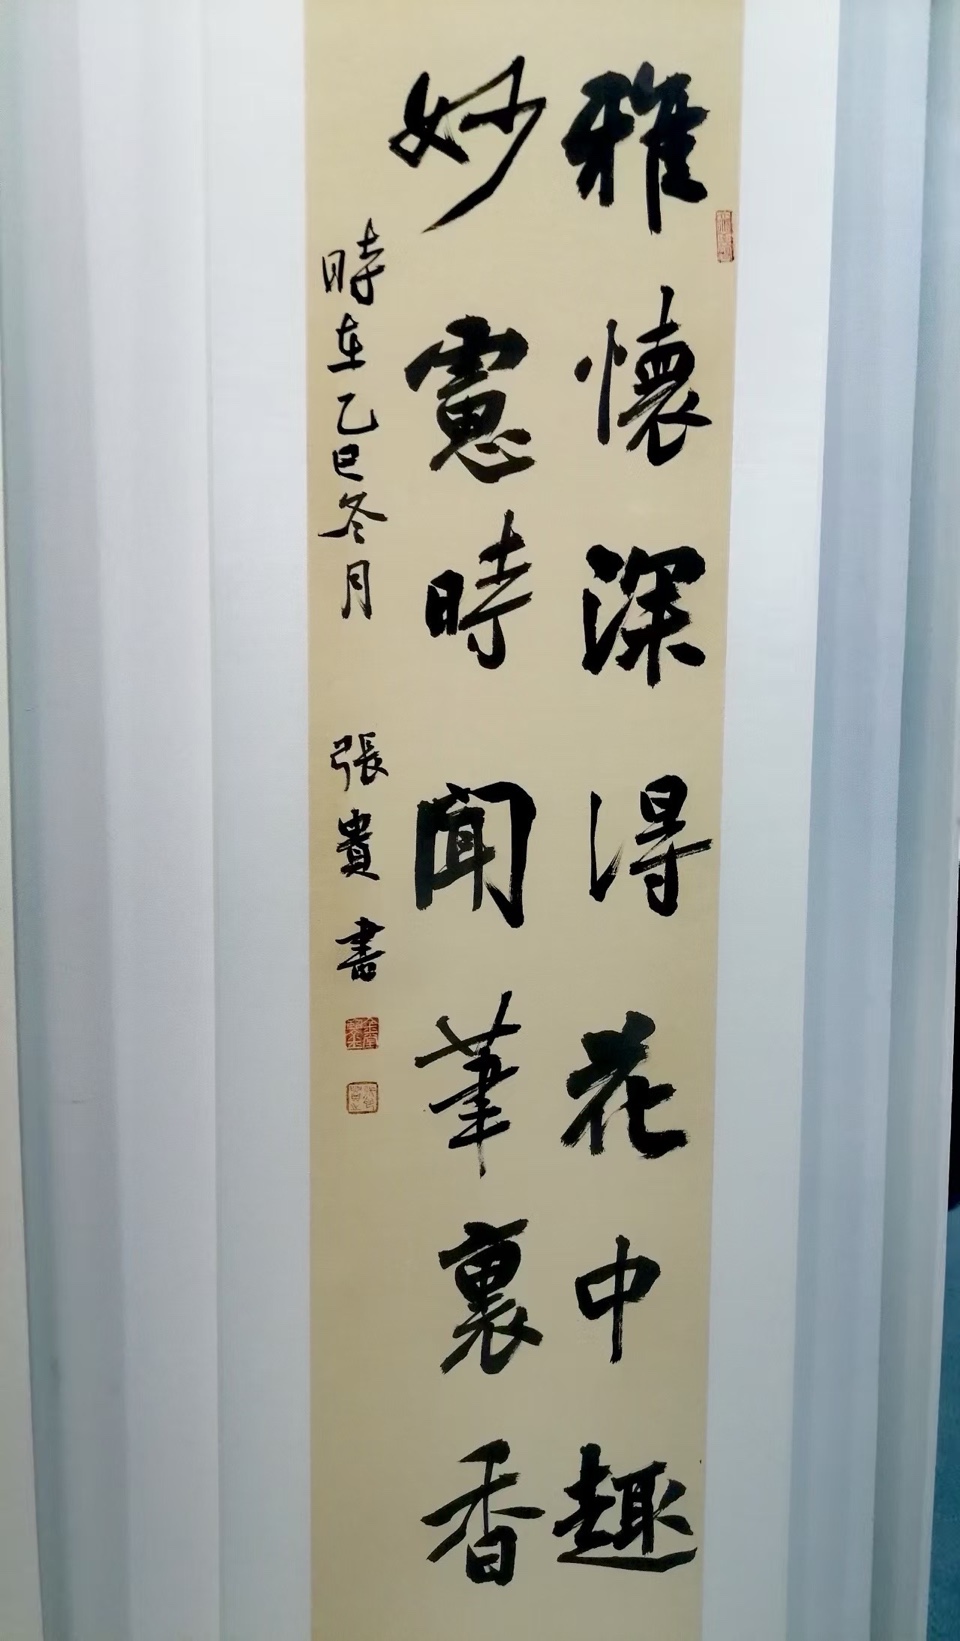 雅懷深得花中趣
妙慮時聞筆裏香
時在乙巳冬月 張貴書